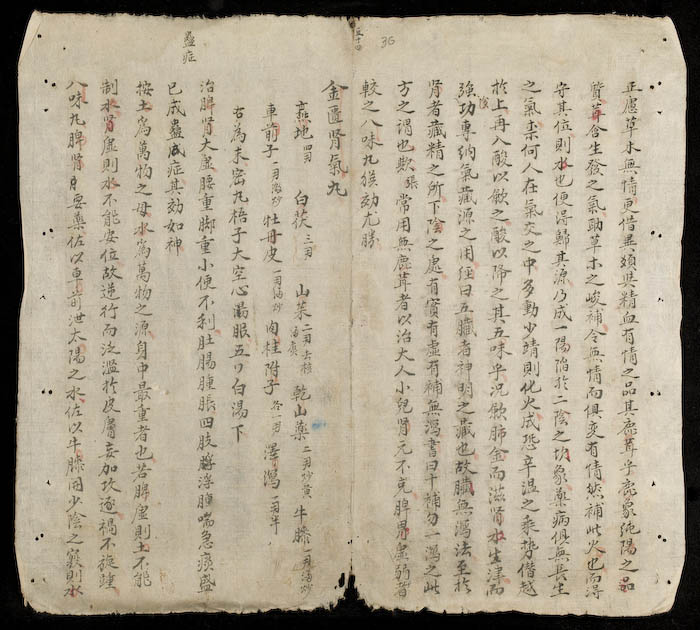 正慮草木無情更借異類與精血有情之品其鹿茸乎鹿象純陽之品
質茸含生發之氣助草木之峻補令無情而俱变有情
守其位則水也便得歸其源乃成一陽陷於二陰之坎象藥病俱無長生
之氣柰何人在氣交之中多動少靖則化火成恐辛温之乘势僣越
於上再入酸以歛之酸以降之其五味乎况歛肺金而滋肾水生津而
強陰功專納氣藏源之用経曰五臟者神明之藏也故臟無瀉法至於
肾者藏精之所下陰之處有實有虚有補無瀉書曰千補勿一瀉之此
方之谓也歟張常用無鹿茸者以治大人小兒肾元不充脾胃虚弱者
較之八味九族効尤勝
金匱肾氣丸
熟地四両 白茯三両 山茱二両去核酒 乾山藥二両炒黄 牛膝一両酒炒
車前子一両 炒 牡丹皮一両酒炒 肉桂附子各一両 澤瀉一両半
右為末密丸梧子大空心湯服五 白湯下
治脾肾大虚腰重脚重小便不利肚腸腫脹四肢 浮腫喘急痰盛
已成蠱脹成症其効如神
按土為萬物之母水為萬物之源身中最重者也若脾虚則土不能
制水肾虚則水不能安位故逆行而泛濫於皮膚妄加攻逐禍不旋踵
八味丸脾肾 要藥佐以車前泄太陽之水佐以牛膝開少陰之竅則水
蠱症
三十四
36